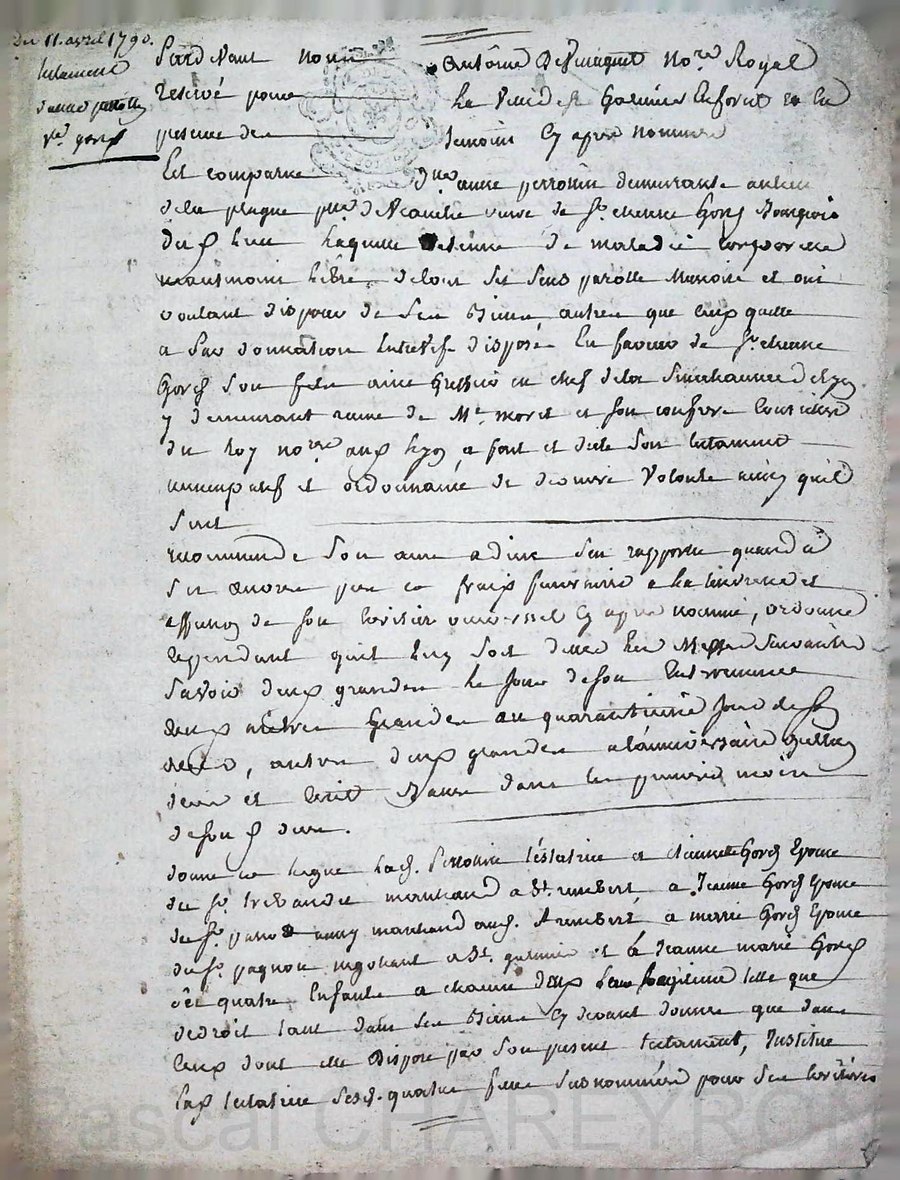 Du 11. avril 1790.
testament
d'anne perrotin
vve gorel
Pardevant nous antoine Desvinques nore Royal
reservé pour la ville de St galmier en forest et en
presence des temoins cy apres nommés
Est comparue dlle anne perrotin demeurante au lieu
dela plagne psse de veauche veuve de Sr etienne Gorel Bourgeois
du d lieu laquelle detenue de maladie corporelle
neantmoins libre de tous ses sens parolle memoire et ouie
voulant disposer de ses biens autres que ceux quelle
a par donnation entrevifs disposé en faveur de Sr etienne
Gorel son fils ainé greffier en chef dela senechaussée de Lyon
y demeurant reçue de Me morel et son confrere conseillers
du roy nores aud Lyon, a fait et dicté son testament
nuncupatif et ordonnance de derniere volonté ainsy quil
suit
recommande son ame a dieu sen rapporte quand a
ses œuvres pies et frais funeraires a la prudence et
affection de son heritier universel cy apres nommé, ordonne
cependant quil luy soit dittes les Messes suivantes
Savoir deux grandes le jour de son enterrement
deux autres grandes au quarantieme jour de son
deces, autres deux grandes a l'anniversaire
deces et huit basses dans les premiers mois
de son d deces.
donne et legue lad. perrotin testatrice a etiennette Gorel epouse
du Sr marchand a St. rembert, a Jeanne Gorel epouse
de Sr aussy marchand aud. St rembert, a marie Gorel epouse
du Sr pagnon negotiant a St. galmier et a Jeanne marie Gorel
ses quatre enfants a chacune deux leur legitime telle que
dedroit tant dans les biens cy devant donnés que dans
ceux dont elle dispose par son present testament, Institue
lad testatrice sesd. quatre filles susnommées pour ses heritieres
Pascal CHAREYRON